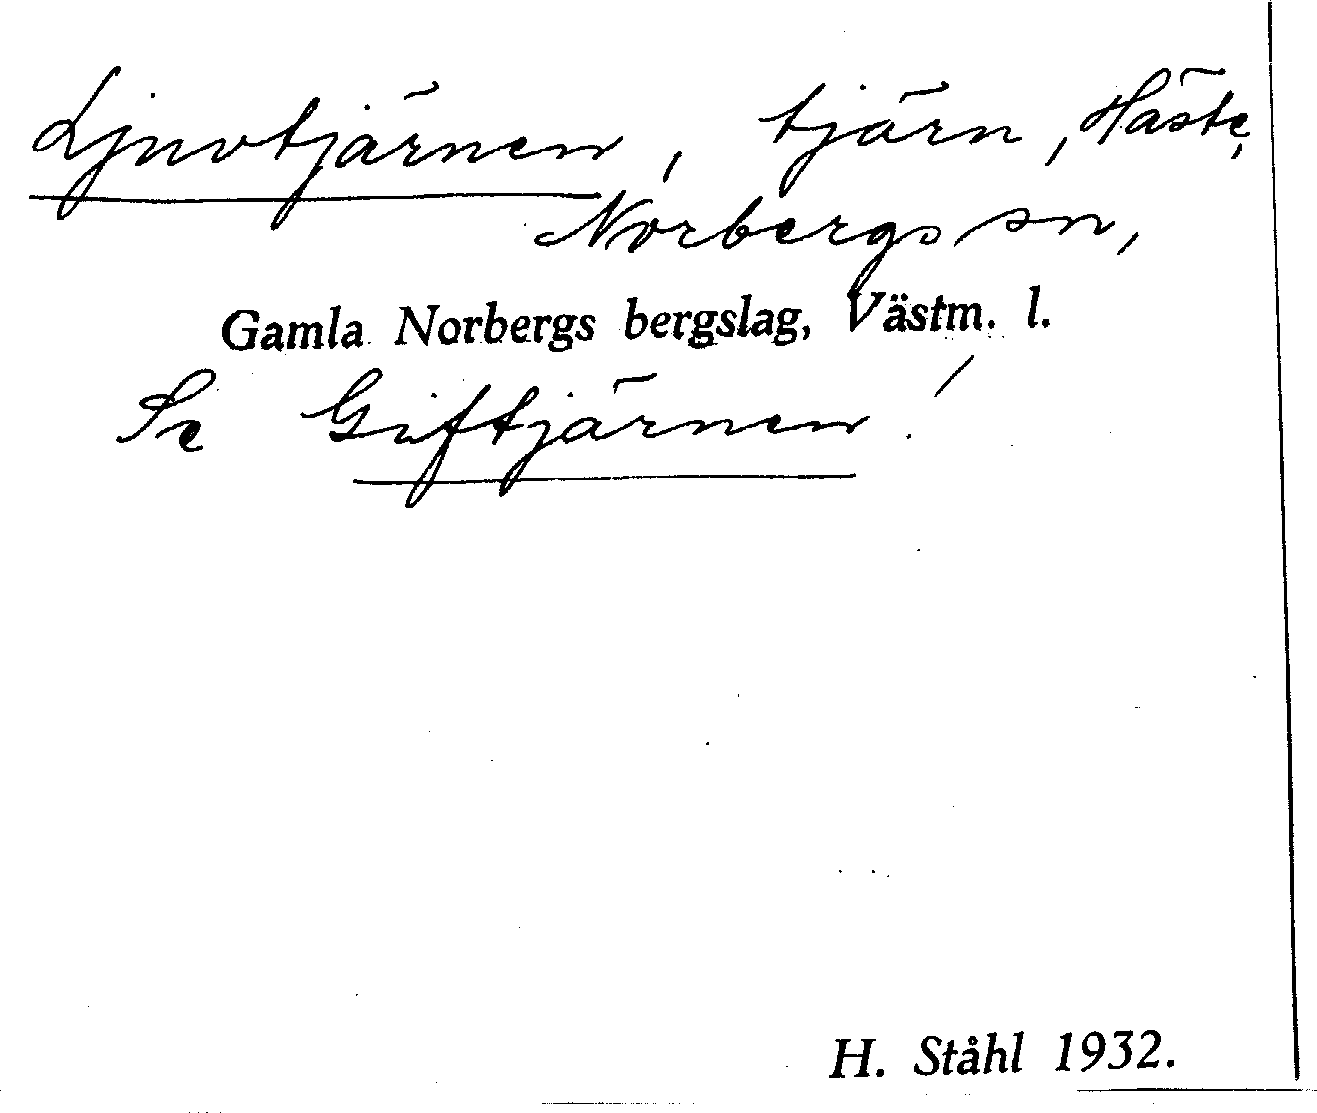 Ljuvtjärnen, tjärn, Häste,
Norbergs sn,
Gamla Norbergs bergslag, Västm. l.
Se Giftjärnen!
H. Ståhl 1932.